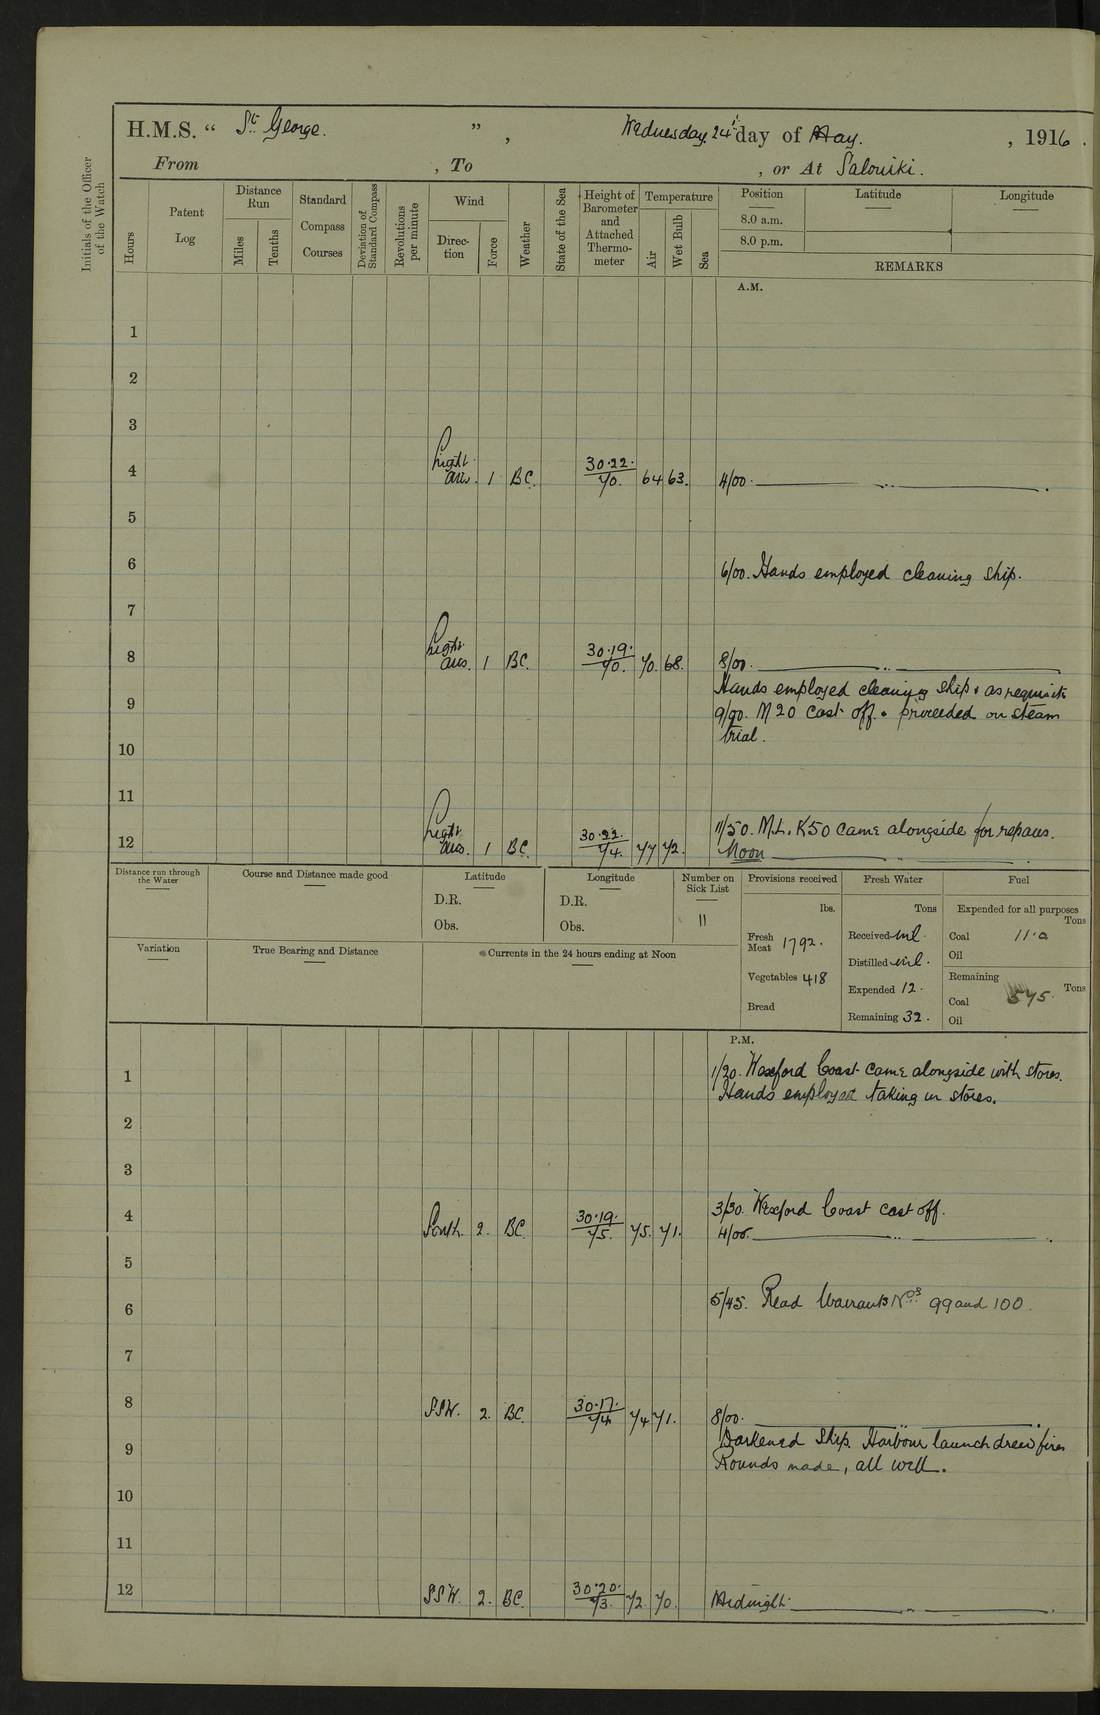 H.M.S. “ St George. ” , Wednesday. 24th day of May. , 1916 .
From , To , or At Saloniki.
Initials of the Officer of the Watch
Hours
Patent Log
Distance Run
Miles
Tenths
Standard Compass Courses
Deviation of Standard Compass
Revolutions per minute
Wind
Direction
Force
Weather
State of the Sea
Height of Barometer and Attached Thermometer
Temperature
Air
Wet Bulb
Sea
Position
8.0 a.m.
8.0 p.m.
Latitude
Longitude
REMARKS
A.M.
1
2
3
4 Light airs. 1 BC. 30.22. 70. 64 63. 4/00. ——— „ ———.
5
6 6/00. Hands employed cleaning ship.
7
8 Light airs. 1 BC. 30.19. 70. 70. 68. 8/00. ——— „ ———
Hands employed cleaning ship & as requisite
9 9/90. M 20 cast off. & proceeded on steam
trial.
10
11
11/50. M.L. K50 came alongside for repairs.
12 Light airs. 1 BC. 30.22. 74. 77 72. Noon ——— „ ———
Distance run through the Water
Course and Distance made good
Latitude
D.R.
Obs.
Longitude
D.R.
Obs.
Number on Sick List
11
Provisions received
lbs.
Fresh Meat 1792.
Vegetables 418
Bread
Fresh Water
Tons
Received nil.
Distilled nil.
Expended 12.
Remaining 32.
Fuel
Expended for all purposes
Tons
Coal 11.0
Oil
Remaining
Tons
Coal 575.
Oil
Variation
True Bearing and Distance
Currents in the 24 hours ending at Noon
P.M.
1 1/20. Wexford Coast came alongside with stores.
Hands employed taking in stores.
2
3
3/30. Wexford Coast cast off.
4 South. 2. BC. 30.19. 75. 75. 71. 4/00. ——— „ ———.
5
6 5/45. Read Warrants Nos 99 and 100.
7
8 SSW. 2. BC. 30.17. 74. 74 71. 8/00. ——— „ ———.
9 Darkened Ship. Harbour launch drew fires
Rounds made, all well.
10
11
12 SSW. 2. BC. 30.20. 73. 72 70. Midnight ——— „ ———.